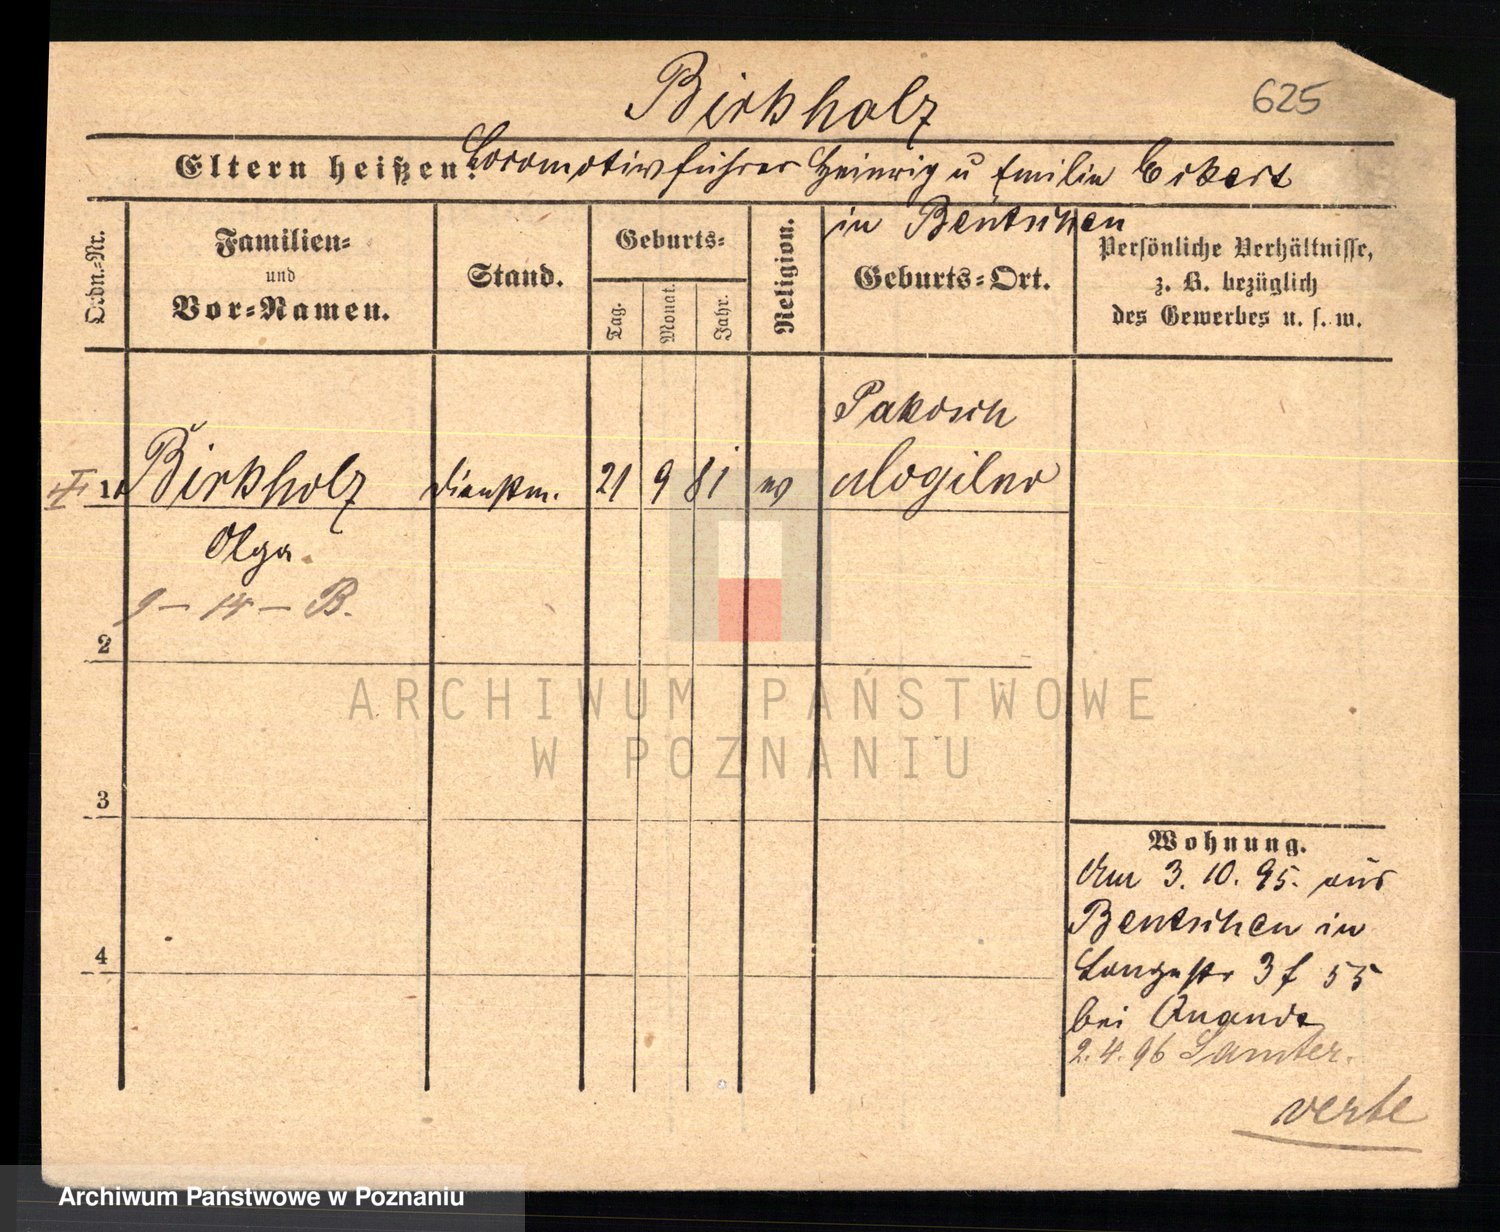 Birkholz
625
Eltern heißen: Locomotivführer Heinrig u Emilie Eckert
in Bentschen
Ordn.-Nr.
Familien-
und
Vor-Namen.
Stand.
Geburts-
Tag.
Monat.
Jahr.
Religion.
Geburts-Ort.
Persönliche Verhältnisse,
z. B. bezüglich
des Gewerbes u. s. w.
Pakosch
1 Birkholz Dienstm. 21 9 81 ev Mogilno
Olga
9 – 14 – B.
2
3
4
ARCHIWUM PAŃSTWOWE
W POZNANIU
Wohnung.
Am 3. 10. 95. aus
Bentschen in
Langestr 3 f 55
bei
2. 4. 96 Samter.
verte
Archiwum Państwowe w Poznaniu